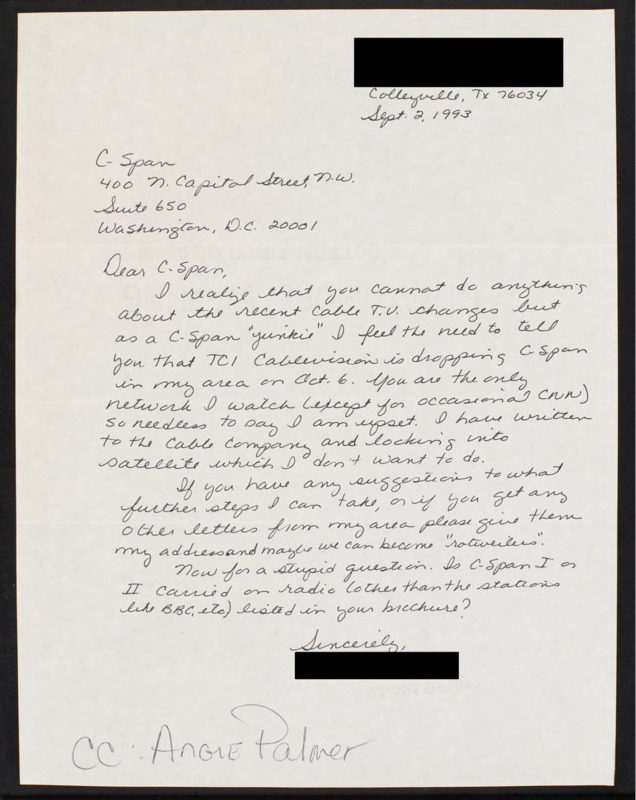 Colleyville, Tx 76034
Sept. 2, 1993
C-Span
400 N. Capital Street, N.W.
Suite 650
Washington, D.C. 20001
Dear C-Span,
I realize that you cannot do anything
about the recent cable T.V. changes but
as a C-Span "junkie" I feel the need to tell
you that TCI Cablevision is dropping C-Span
in my area on Oct. 6. You are the only
network I watch (except for occasional CNN)
so needless to say I am upset. I have written
to the Cable Company and looking into
satellite which I don't want to do.
If you have any suggestions to what
further steps I can take, or if you get any
other letters from my area please give them
my address and maybe we can become "rotweilers".
Now for a stupid question. Is C-Span I or
II carried on radio (other than the stations
like BBC, etc) listed in your brochure?
Sincerely,
CC: Angie Palmer